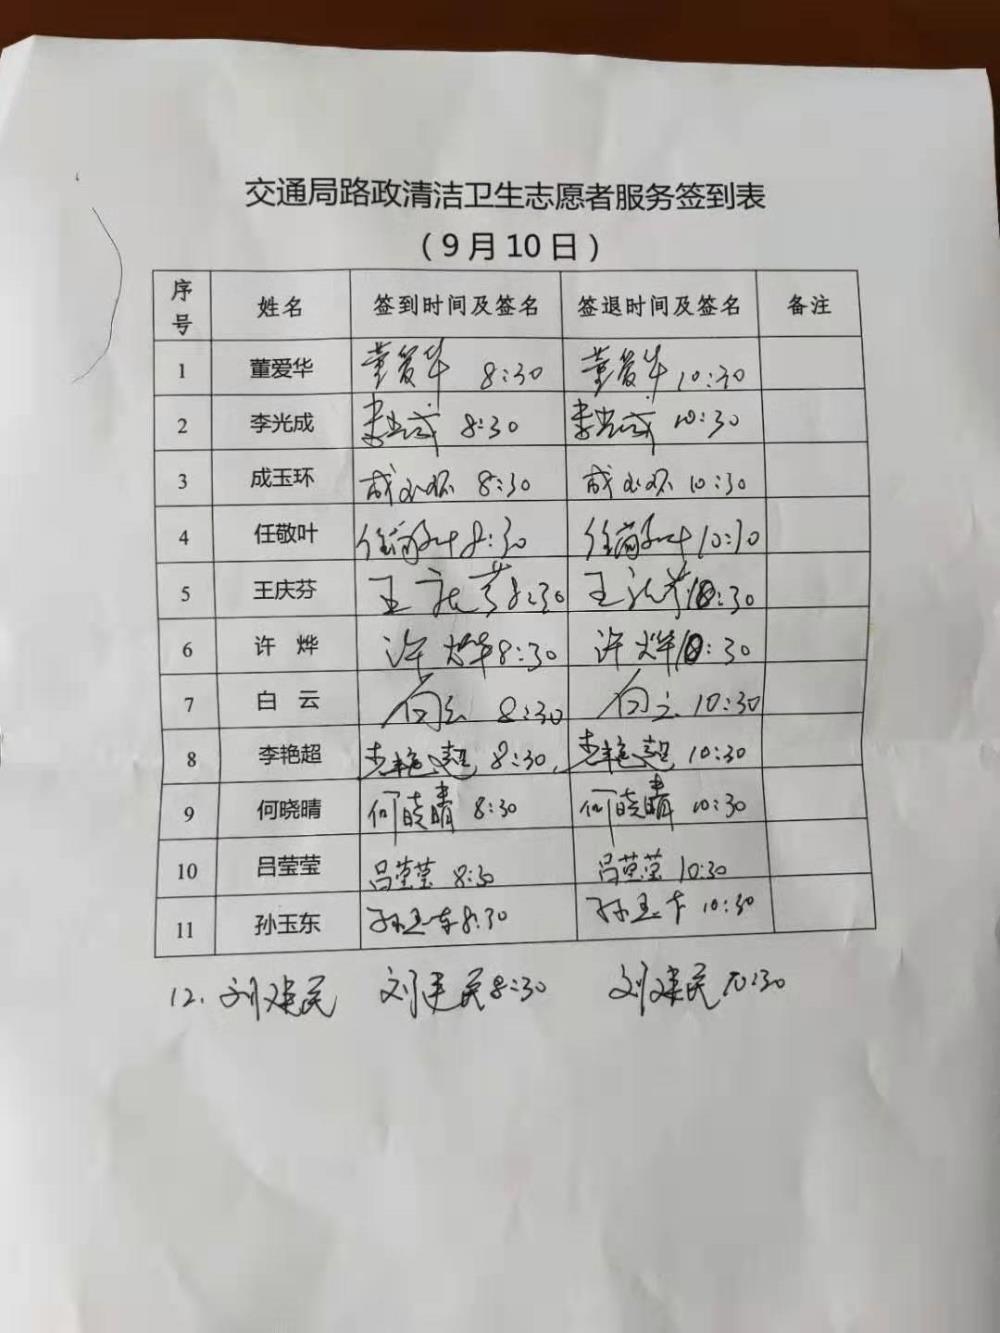 交通局路政清洁卫生志愿者服务签到表
（9月10日）
序号 姓名 签到时间及签名 签退时间及签名 备注
1 董爱华 董爱华 8:30 董爱华 10:30
2 李光成 李光成 8:30 李光成 10:30
3 成玉环 成玉环 8:30 成玉环 10:30
4 任敬叶 任敬叶 8:30 任敬叶 10:30
5 王庆芬 王庆芬 8:30 王庆芬 10:30
6 许 烨 许烨 8:30 许烨 10:30
7 白 云 白云 8:30 白云 10:30
8 李艳超 李艳超 8:30 李艳超 10:30
9 何晓晴 何晓晴 8:30 何晓晴 10:30
10 吕莹莹 吕莹莹 8:30 吕莹莹 10:30
11 孙玉东 孙玉东 8:30 孙玉东 10:30
12. 刘建民 刘建民 8:30 刘建民 10:30